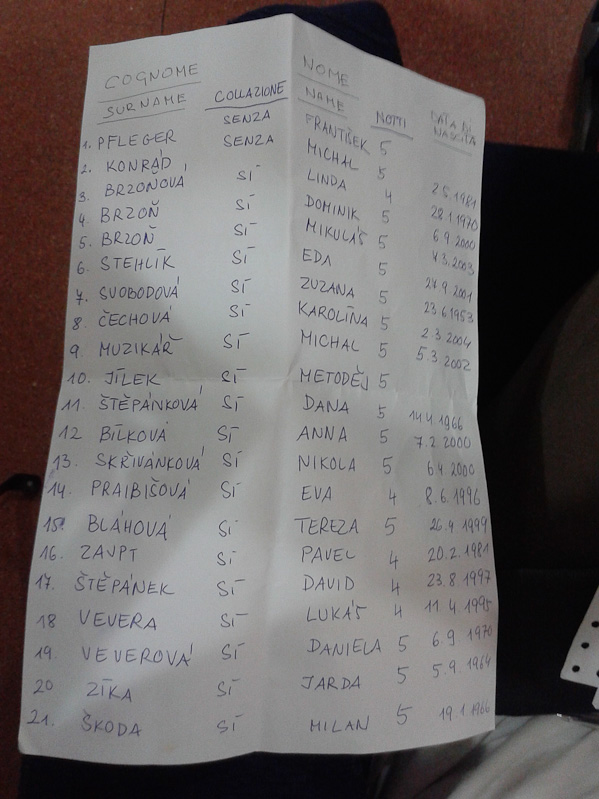 COGNOME NOME
SURNAME COLLAZIONE NAME NOTTI DATA DI NASCITA
1. PFLEGER SENZA FRANTIŠEK 5 2.5.1981
2. KONRÁD SENZA MICHAL 5 28.1.1970
3. BRZOŇOVÁ SÍ LINDA 4 6.9.2000
4. BRZOŇ SÍ DOMINIK 5 4.3.2003
5. BRZOŇ SÍ MIKULÁŠ 5 24.9.2001
6. STEHLÍK SÍ EDA 5 23.6.1953
7. SVOBODOVÁ SÍ ZUZANA 5 2.3.2004
8 ČECHOVÁ SÍ KAROLÍNA 5 5.3.2002
9. MUZIKÁŘ SÍ MICHAL 5
10. JÍLEK SÍ METODĚJ 5
11. ŠTĚPÁNKOVÁ SÍ DANA 5 14.4.1966
12 BÍLKOVÁ SÍ ANNA 5 7.2.2000
13. SKŘIVÁNKOVÁ SÍ NIKOLA 5 6.4.2000
14. PRAIBIŠOVÁ SÍ EVA 4 8.6.1996
15. BLÁHOVÁ SÍ TEREZA 5 26.4.1999
16. ZAJPT SÍ PAVEL 4 20.2.1981
17. ŠTĚPÁNEK SÍ DAVID 4 23.8.1997
18 VEVERA SÍ LUKÁŠ 4 11.4.1995
19. VEVEROVÁ SÍ DANIELA 5 6.9 1970
20 ZÍKA SÍ JARDA 5 5.9.1964
21. ŠKODA SÍ MILAN 5 19.1.1966